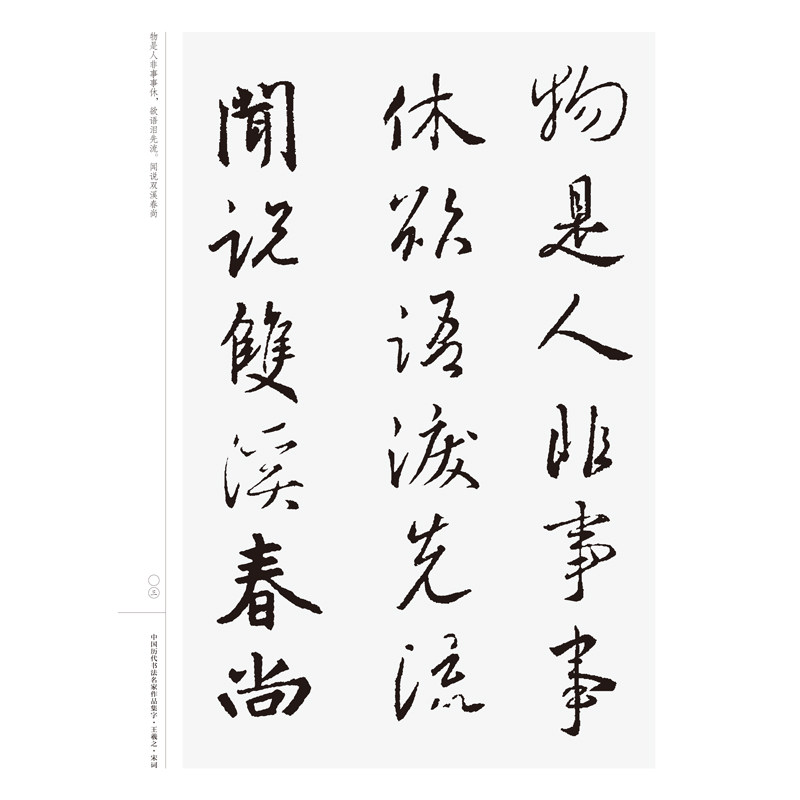 物是人非事事
休欲語淚先流
聞説雙溪春尚
物是人非事事休，欲语泪先流。闻说双溪春尚
〇三
中国历代书法名家作品集字·王羲之·宋词